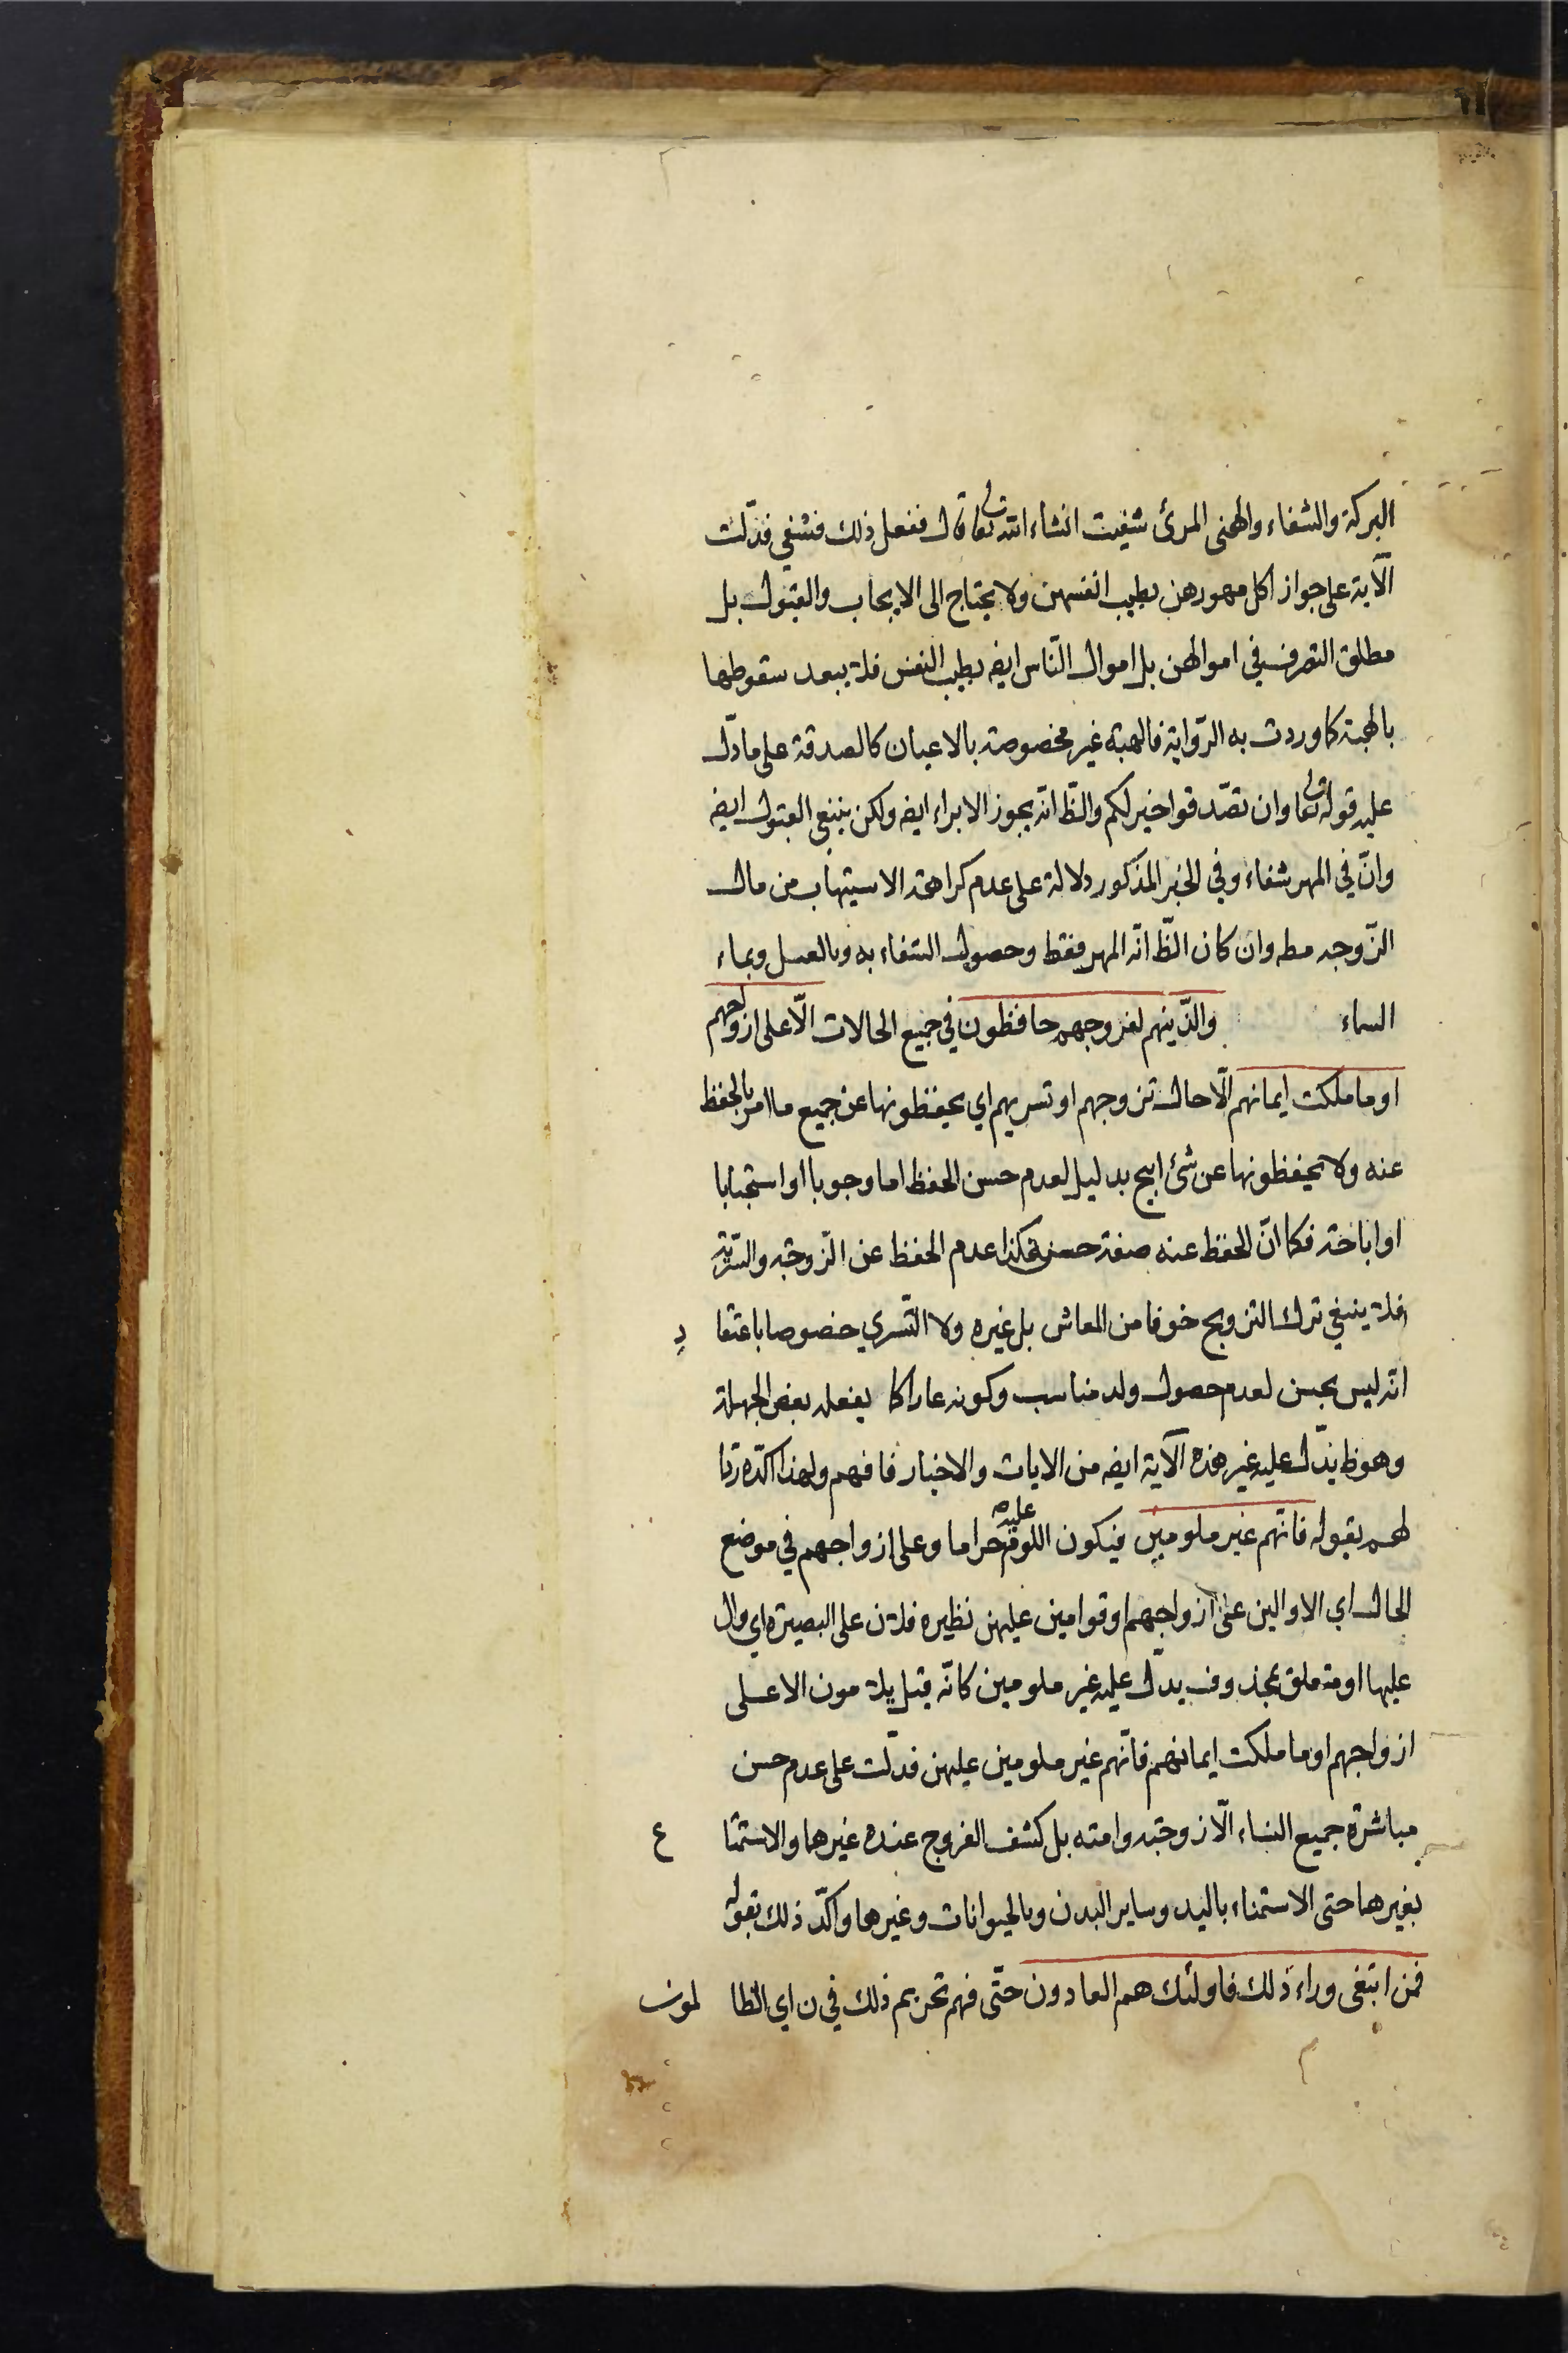 البركة والشفاء والهنى المرئ شفيت انشاء الله تعالى قال ففعل ذلك فشفى فدّلت
الآية على جواز اكل مهورهن بطيب انفسهن ولا يحتاج الى الايجاب والقبول بل
مطلق التصرف في اموالهن بل اموال النّاس ايضه بطيب النفس فلا يبعد سقوطها
بالهبة كما وردت به الرّواية فالهبة غير مخصوصة بالاعيان كالصدقة على ما دّل
عليه قوله تعالى وان تصّدقوا خير لكم والظّ انّه يجوز الابراء ايضه ولكن ينبغي القبول ايضه
وانّ في المهر شفاء وفي الخبر المذكور دلالة على عدم كراهة الاستيهاب من مال
الزّوجه مطه وان كان الظّ انّه المهر فقط وحصول الشفاء به وبالعسل وبماء
السماء والذّينهم لفروجهم حافظون في جميع الحالات الّا على ازواجهم
او ما ملكت ايمانهم الّا حال تزوجهم او تسريهم اي يحفظونها عن جميع ما امر بالحفظ
عنه ولا يحفظونها عن شئ ابيح بدليل لعدم حسن الحفظ اما وجوبا او استحبابا
او اباحته فكما انّ الحفظ عنه صفة حسن فكذا عدم الحفظ عن الزّوجة والسّرّية
فلا ينبغي ترك التزويج خوفا من المعاش بل غيره ولا التّسري خصوصا باعتقاد
انّه ليس بحسن لعدم حصول ولد مناسب وكونه عارا كما يفعله بعض الجهلة
وهو ظ يدّل عليه غير هذه الآية ايضه من الايات والاخبار فافهم ولهذا اكّده ردّا
لهم بقوله فانّهم غير ملومين فيكون اللوم عليه حراما وعلى ازواجهم في موضع
الحال اي الا والين على ازواجهم او قوامين عليهن نظيره فلان على البصيرة اي وال
عليها او متعلق بمحذوف يدّل عليه غير ملومين كانّه قيل يلامون الا على
ازواجهم او ما ملكت ايمانهم فانّهم غير ملومين عليهن فدّلت على عدم حسن
مباشرة جميع النساء الّا زوجته وامته بل كشف الفروج عنده غيرهما والاستمتاع
بغيرهما حتى الاستمناء باليد وساير البدن وبالحيوانات وغيرها واكّد ذلك بقوله
فمن ابتغى وراء ذلك فاولئك هم العادون حتّى فهم تحريم ذلك في ن اي الظالمون